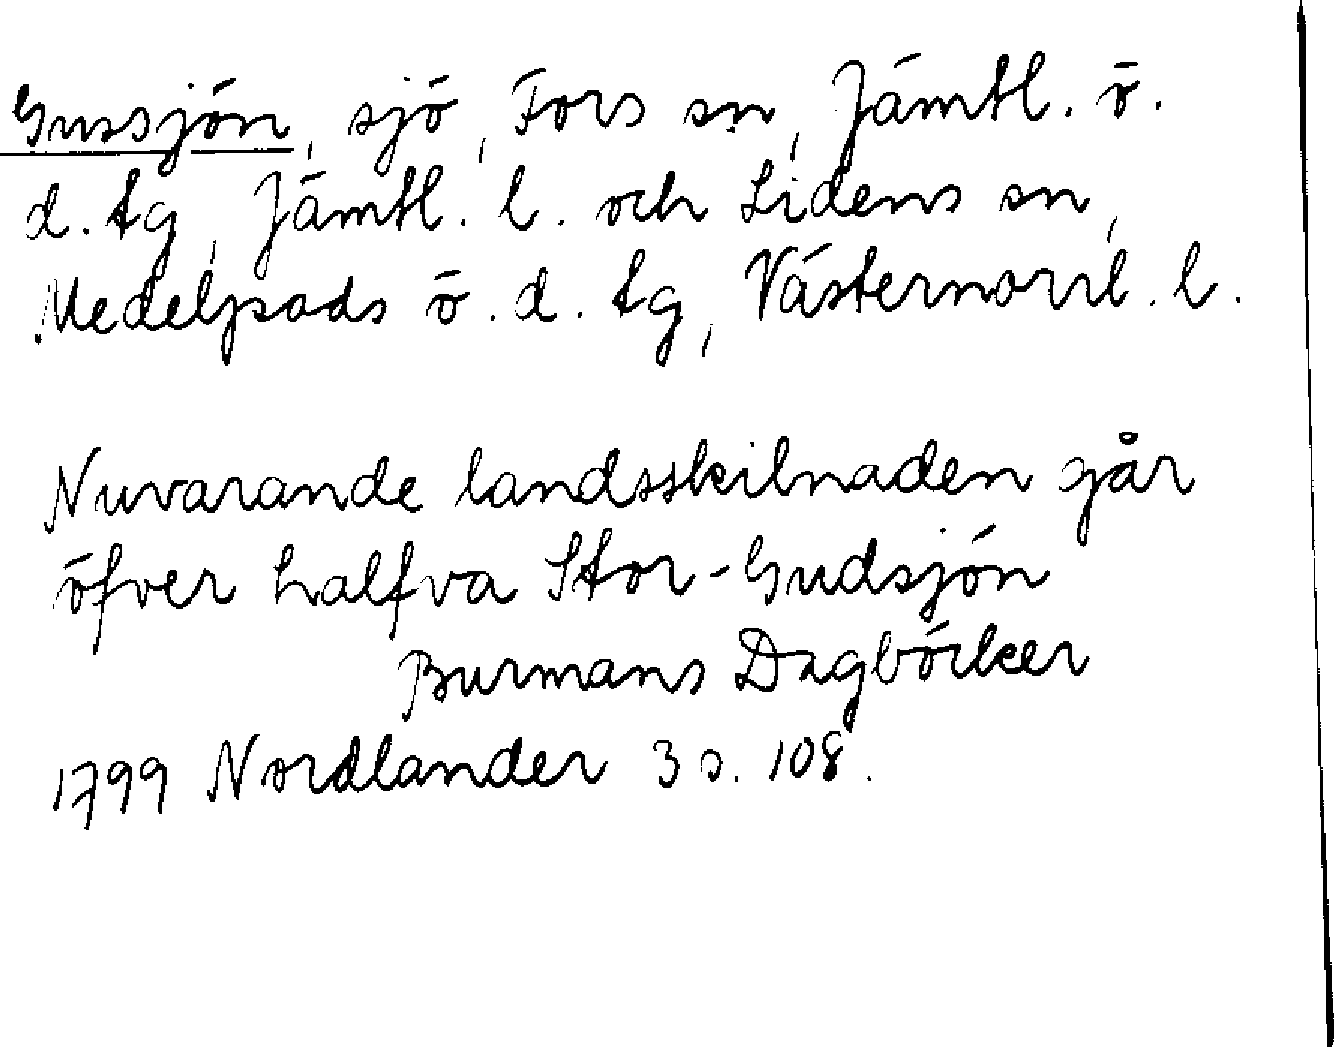 Gussjön, sjö, Fors sn, Jämtl. ö.
d. tg, Jämtl. l. och Lidens sn,
Medelpads ö. d. tg, Västernorrl. l.
Nuvarande landsskilnaden går
öfver halfva Stor-Gudsjön
Burmans Dagböcker
1799 Nordlander 3 s. 108.